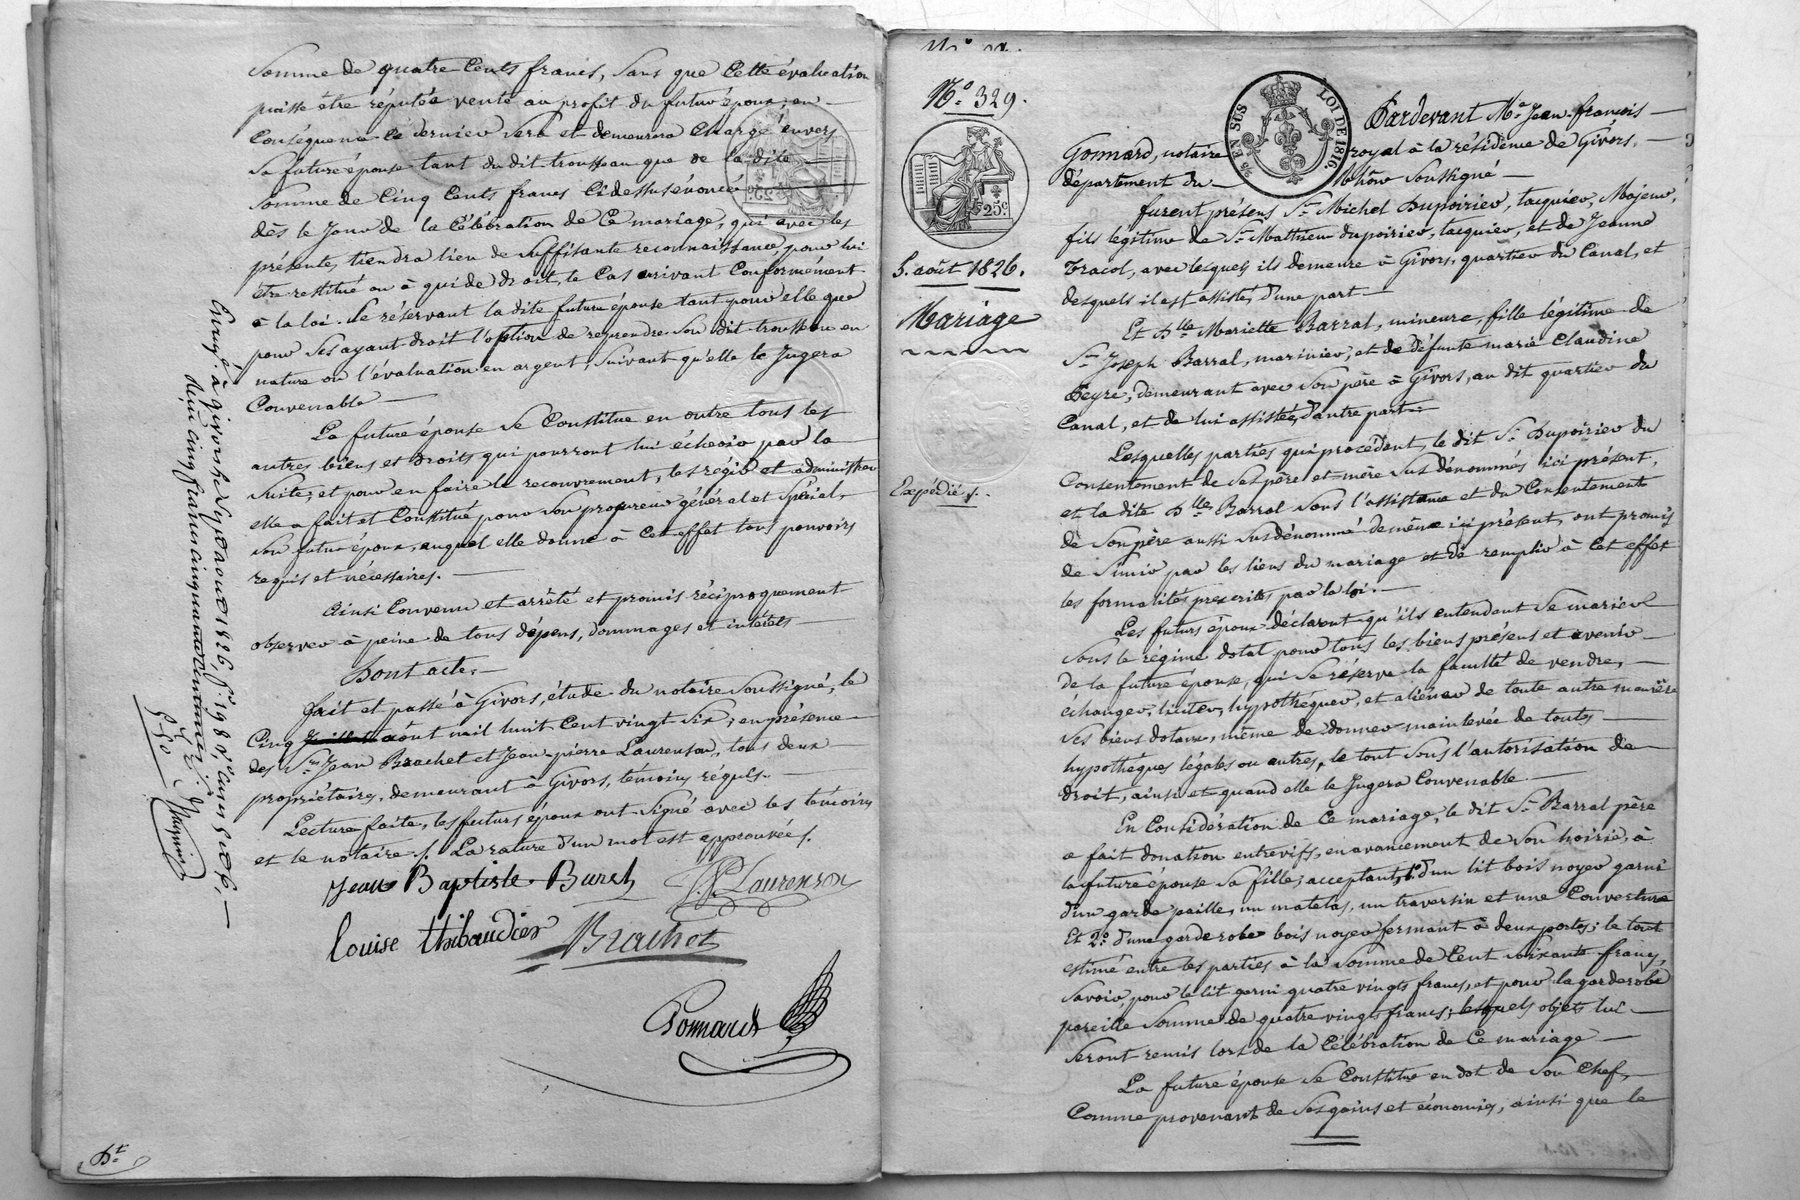 Somme de quatre Cents francs, Sans que Cette évaluation
puisse être réputée vente au profit du futur époux; en
Conséquence Ce dernier Sera et demeurera Chargé envers
Sa future épouse tant du dit trousseau que de la dite
Somme de Cinq Cents francs Ci dessus énoncée
dès le Jour de la Célébration de Ce mariage, qui avec les
présentes, tiendra lieu de suffisante reconnaissance, pour lui
être restitué ou à qui de droit, le Cas arrivant Conformément
à la loi. Se réservant la dite future épouse tant pour elle que
pour Ses ayant droit l'option de reprendre Son dit trousseau en
nature ou l'évaluation en argent, Suivant qu'elle le Jugera
Convenable
La future épouse Se Constitue en outre tous les
autres biens et droits qui pourront lui échoir par la
Suite; et pour en faire le recouvrement, les régir et administrer
elle a fait et Constitué pour Son procureur général et Spécial,
Son futur époux, auquel elle donne à Cet effet tous pouvoirs
requis et nécessaires.
Ainsi Convenu et arrêté et promis réciproquement
observer à peine de tous dépens, dommages et intérêts
Dont acte,
fait et passé à Givors, étude du notaire Soussigné, le
Cinq Juillet août mil huit Cent vingt Six; en présence
des Srs Jean Brachet et Jean-pierre Laurenson, tous deux
propriétaires, demeurant à Givors, témoins réquis.
Lecture faite, les futurs époux ont Signé avec les témoins
et le notaire /. La rature d'un mot est approuvée /.
Jean Baptiste Buret
JP Laurenson
Louise thibaudier
Brachet
Gonnard
Enreg.é à givors le Sept aout 1826, f.° 198 v.° Cases 5 et 6,
reçu cinq francs cinquante centimes
Dt
N.° 329.
25c
5. août 1826.
Mariage
Expédié /.
EN SUS
LOI DE 1816
Pardevant Me Jean-françois
Gonnard, notaire royal à la résidence de Givors,
département du Rhône Soussigné
furent présens Sr Michel Dupoirier, taquier, Majeur,
fils légitime de Sr Mathieu dupoirier, taquier, et de Jeanne
Tracol, avec lesquels il demeure à Givors, quartier du Canal, et
desquels il est assisté, d'une part
Et Dlle Mariette Barral, mineure, fille légitime de
Sr Joseph Barral, marinier, et de défunte marie Claudine
Peyre, demeurant avec Son père à Givors, au dit quartier du
Canal, et de lui assistée, d'autre part
Lesquelles parties qui procédent, le dit Sr Dupoirier du
Consentement de Ses père et mère Sus dénommés ici présent,
et la dite Dlle Barral Sous l'assistance et du Consentement
de Son père aussi Sus dénommé de même ici présent, ont promis
de S'unir par les liens du mariage et de remplir à Cet effet
les formalités prescrites par la loi.
Les futurs époux déclarent qu'ils entendent Se marier
Sous le régime dotal pour tous les biens présens et avenir
de la future épouse, qui Se réserve la faculté de vendre,
échanger, liciter, hypothéquer, et aliéner de toute autre manière
Ses biens dotaux, même de donner mainlevée de toutes
hypothèques légales ou autres, le tout Sous l'autorisation de
droit, ainsi et quand elle le Jugera Convenable.
En Considération de Ce mariage, le dit Sr Barral père
a fait donation entrevifs, en avancement de Son hoirie, à
la future épouse Sa fille, acceptant, 1° d'un lit bois noyer garni
d'un garde paille, un matelas, un traversin et une Couverture
Et 2° d'une garderobe bois noyer fermant à deux portes; le tout
estimé entre les parties à la Somme de Cent Soixante francs,
Savoir, pour le lit garni quatre vingts francs, et pour la garderobe
pareille Somme de quatre vingts francs; lesquels objets lui
Seront remis lors de la Célébration de Ce mariage
La future épouse Se Constitue en dot de Son Chef,
Comme provenant de Ses gains et économies, ainsi que le